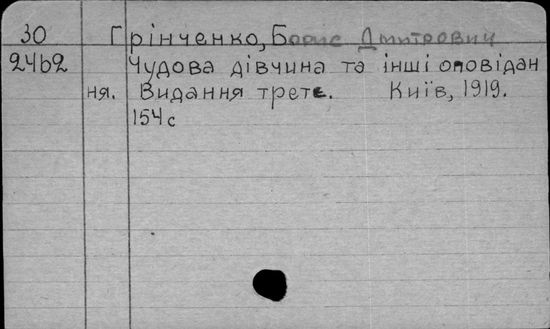 30 Грінченко, Борис Дмитрович
2462 Чудова дівчина та інші оповідан
ня. Видання третє. Київ, 1919.
154с